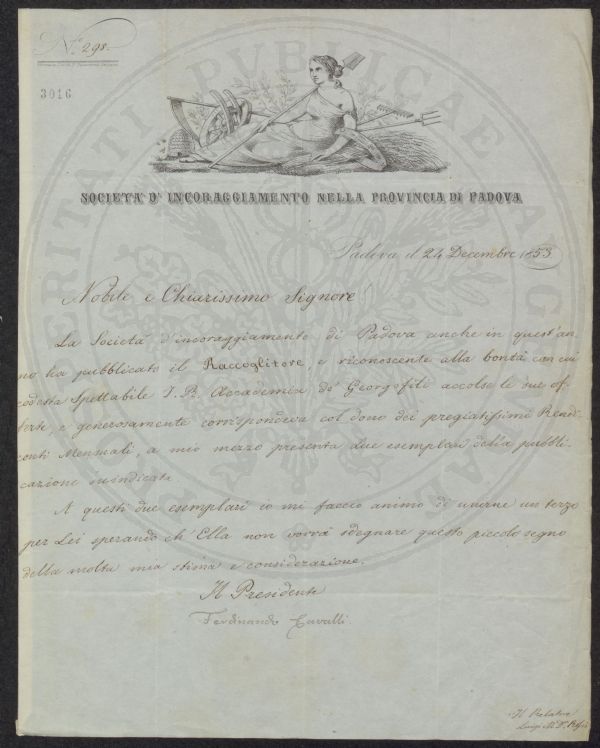 N.º 298.
3016
SOCIETÀ D' INCORAGGIAMENTO NELLA PROVINCIA DI PADOVA
Padova il 24 Decembre 1853
Nobile e Chiarissimo Signore
La Società d'incoraggiamento di Padova anche in quest'an-
no ha pubblicato il Raccoglitore, e riconoscente alla bontà con cui
codesta Spettabile I. R. Accademia de' Georgofili accolse le sue of-
ferte, e generosamente corrispondeva col dono dei pregiatissimi Rendi-
conti Mensuali, a mio mezzo presenta due esemplari della pubbli-
cazione suindicata
A questi due esemplari io mi faccio animo di unirne un terzo
per Lei sperando ch' Ella non vorrà sdegnare questo piccolo segno
della molta mia stima e considerazione.
Il Presidente
Ferdinando Cavalli.
Il Relatore
Luigi